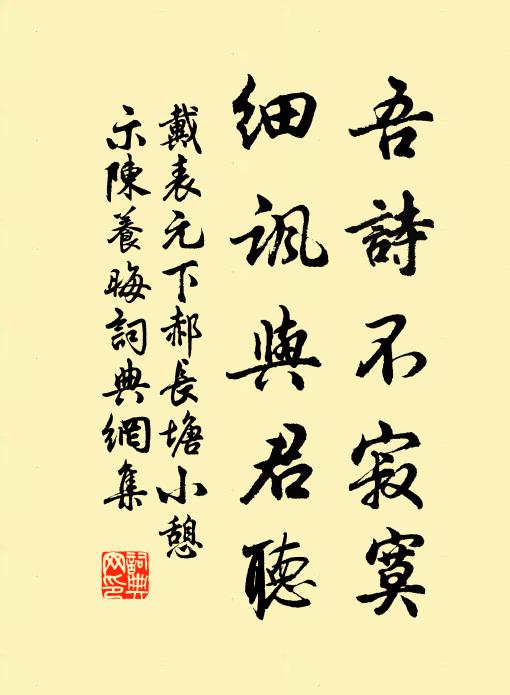 吾詩不寂寞
細諷與君聽
戴表元下郝長塘小憩
示陳養晦詞典網集
詞典
网印